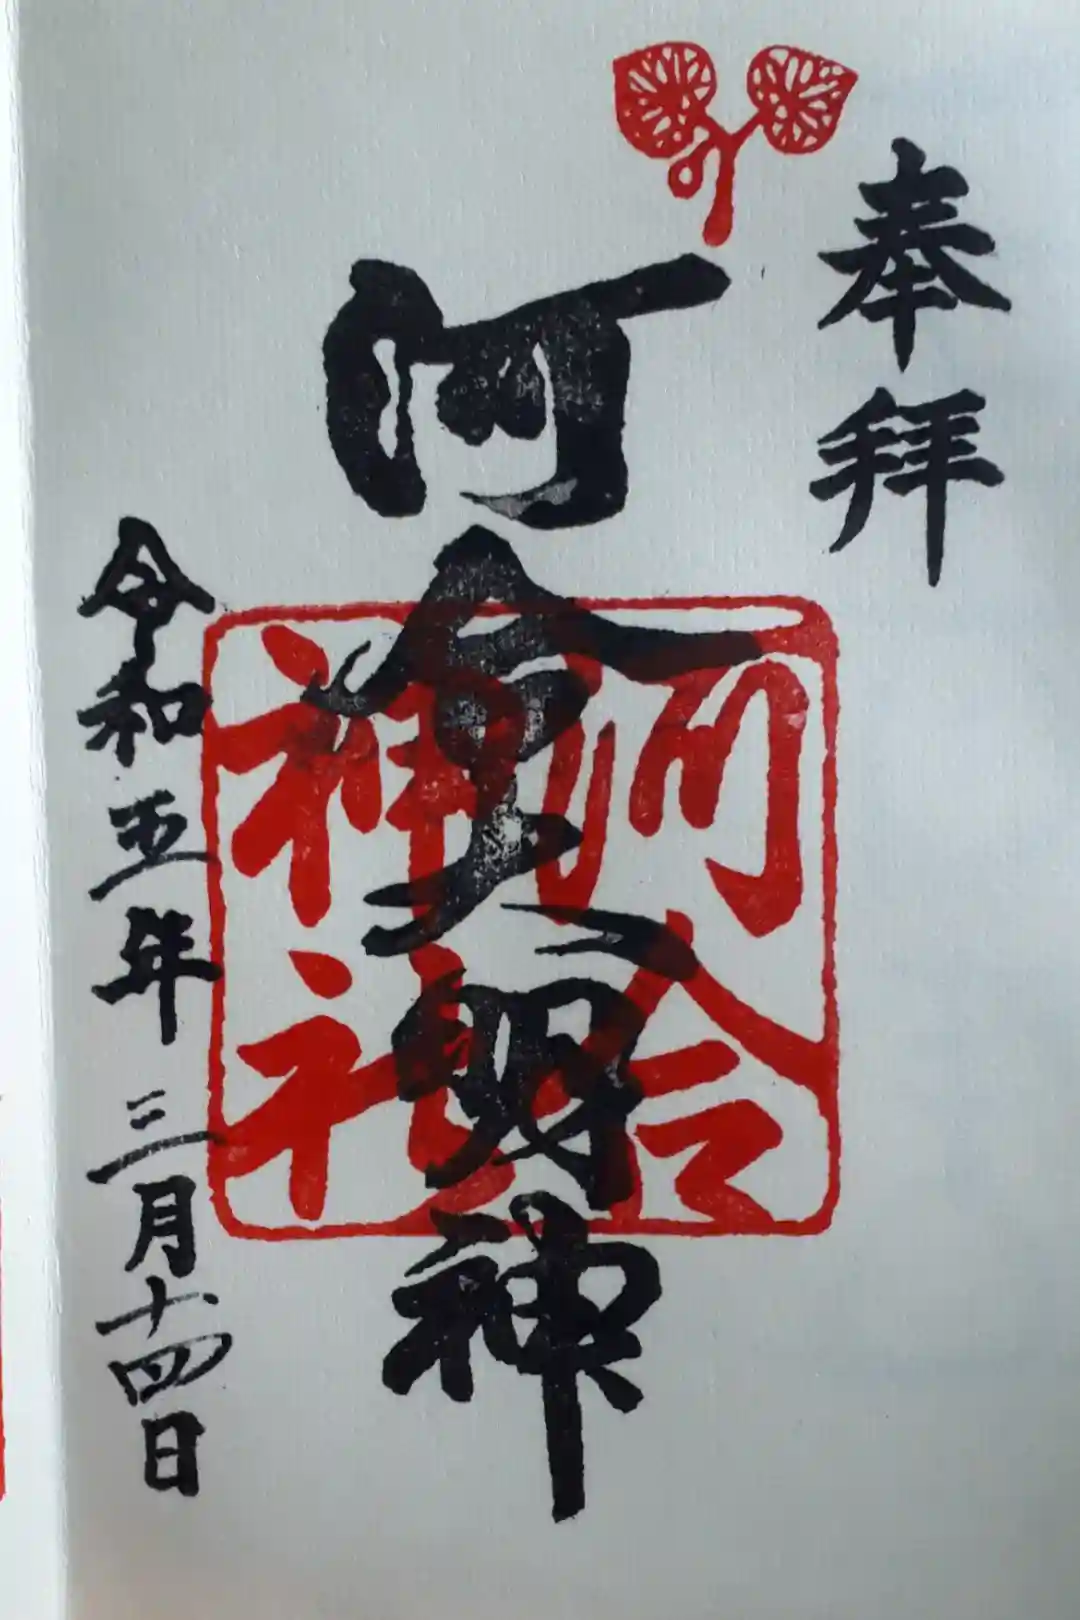 奉拝
河合大明神
河合
神社
令和五年 三月十四日